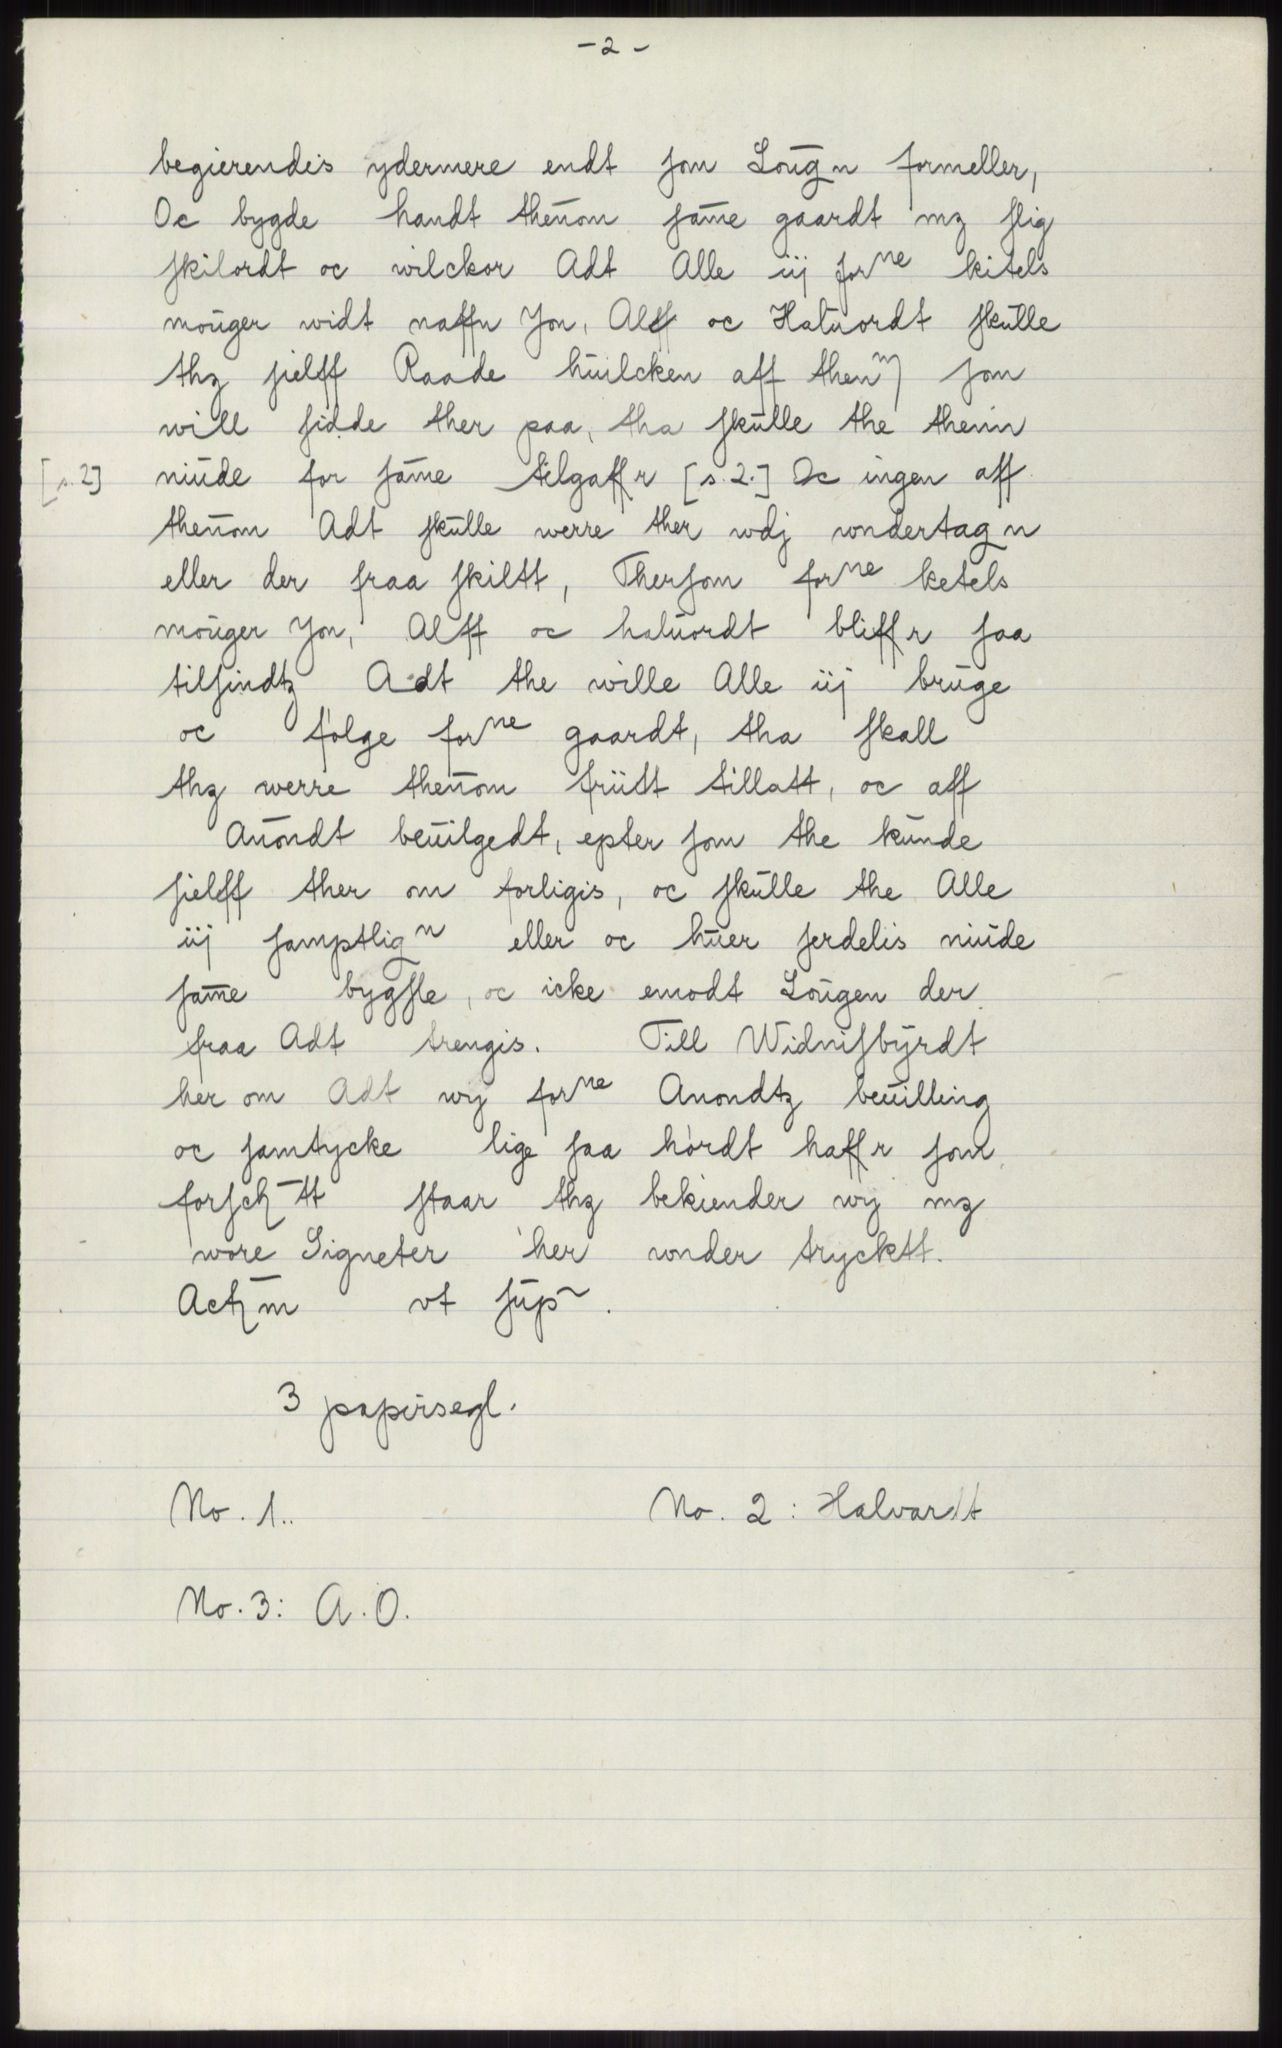 - 2 -
begierendis ydermere endt ſom Loūgn formeller,
Oc bygde handt thenom ſāme gaardt mz ſlig
ſkilordt oc wilckor Adt Alle iij forne kitels
moūger widt naffn Jon, Alff oc Halūordt ſkūlle
thz ſielff Raade hūilcken aff them ſom
will ſidde ther paa, tha ſkūlle the thenn
niūde for ſāme tilgaffr [s. 2.] Oc ingen aff
[s. 2]
thenom Adt ſkūlle werre ther wdj wndertagn
eller der fraa ſkiltt, Therſom forne ketels
moūger Jon, Alff oc halūordt bliffr ſaa
tilſindtz Adt the wille Alle iij brūge
oc følge forne gaardt, tha ſkall
thz werre thenom friitt tillatt, oc aff
Anondt beūilgedt, epter ſom the kūnde
ſielff ther om forligis, oc ſkūlle the Alle
iij ſamptlign eller oc hūer ſerdelis niūde
ſāme bygſle, oc icke emodt Loūgen der
fraa Adt trengis. Till Widniſbyrdt
her om Adt wij forne Anondtz beūilling
oc ſamtycke lige ſaa hördt haffr ſom
forſch̄tt ſtaar thz bekiender wij mz
wore Signeter her wnder trycktt.
Actūm vt ſūp~.
3 papirsegl.
No. 1..
No. 2: Halvardt
No. 3: A. O.